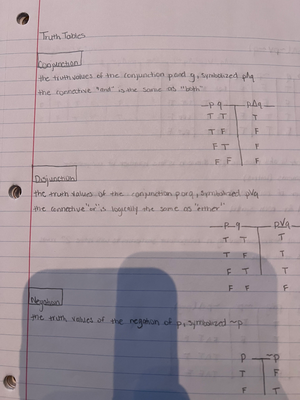 Truth Tables
Conjunction
the truth values of the conjunction p and q, symbolized p∧q
the connective "and" is the same as "both"
p q p∧q
T T T
T F F
F T F
F F F
Disjunction
the truth values of the conjunction p or q, symbolized p∨q
the connective "or" is logically the same as "either"
p q p∨q
T T T
T F T
F T T
F F F
Negation
the truth values of the negation of p, symbolized ~p
p ~p
T F
F T